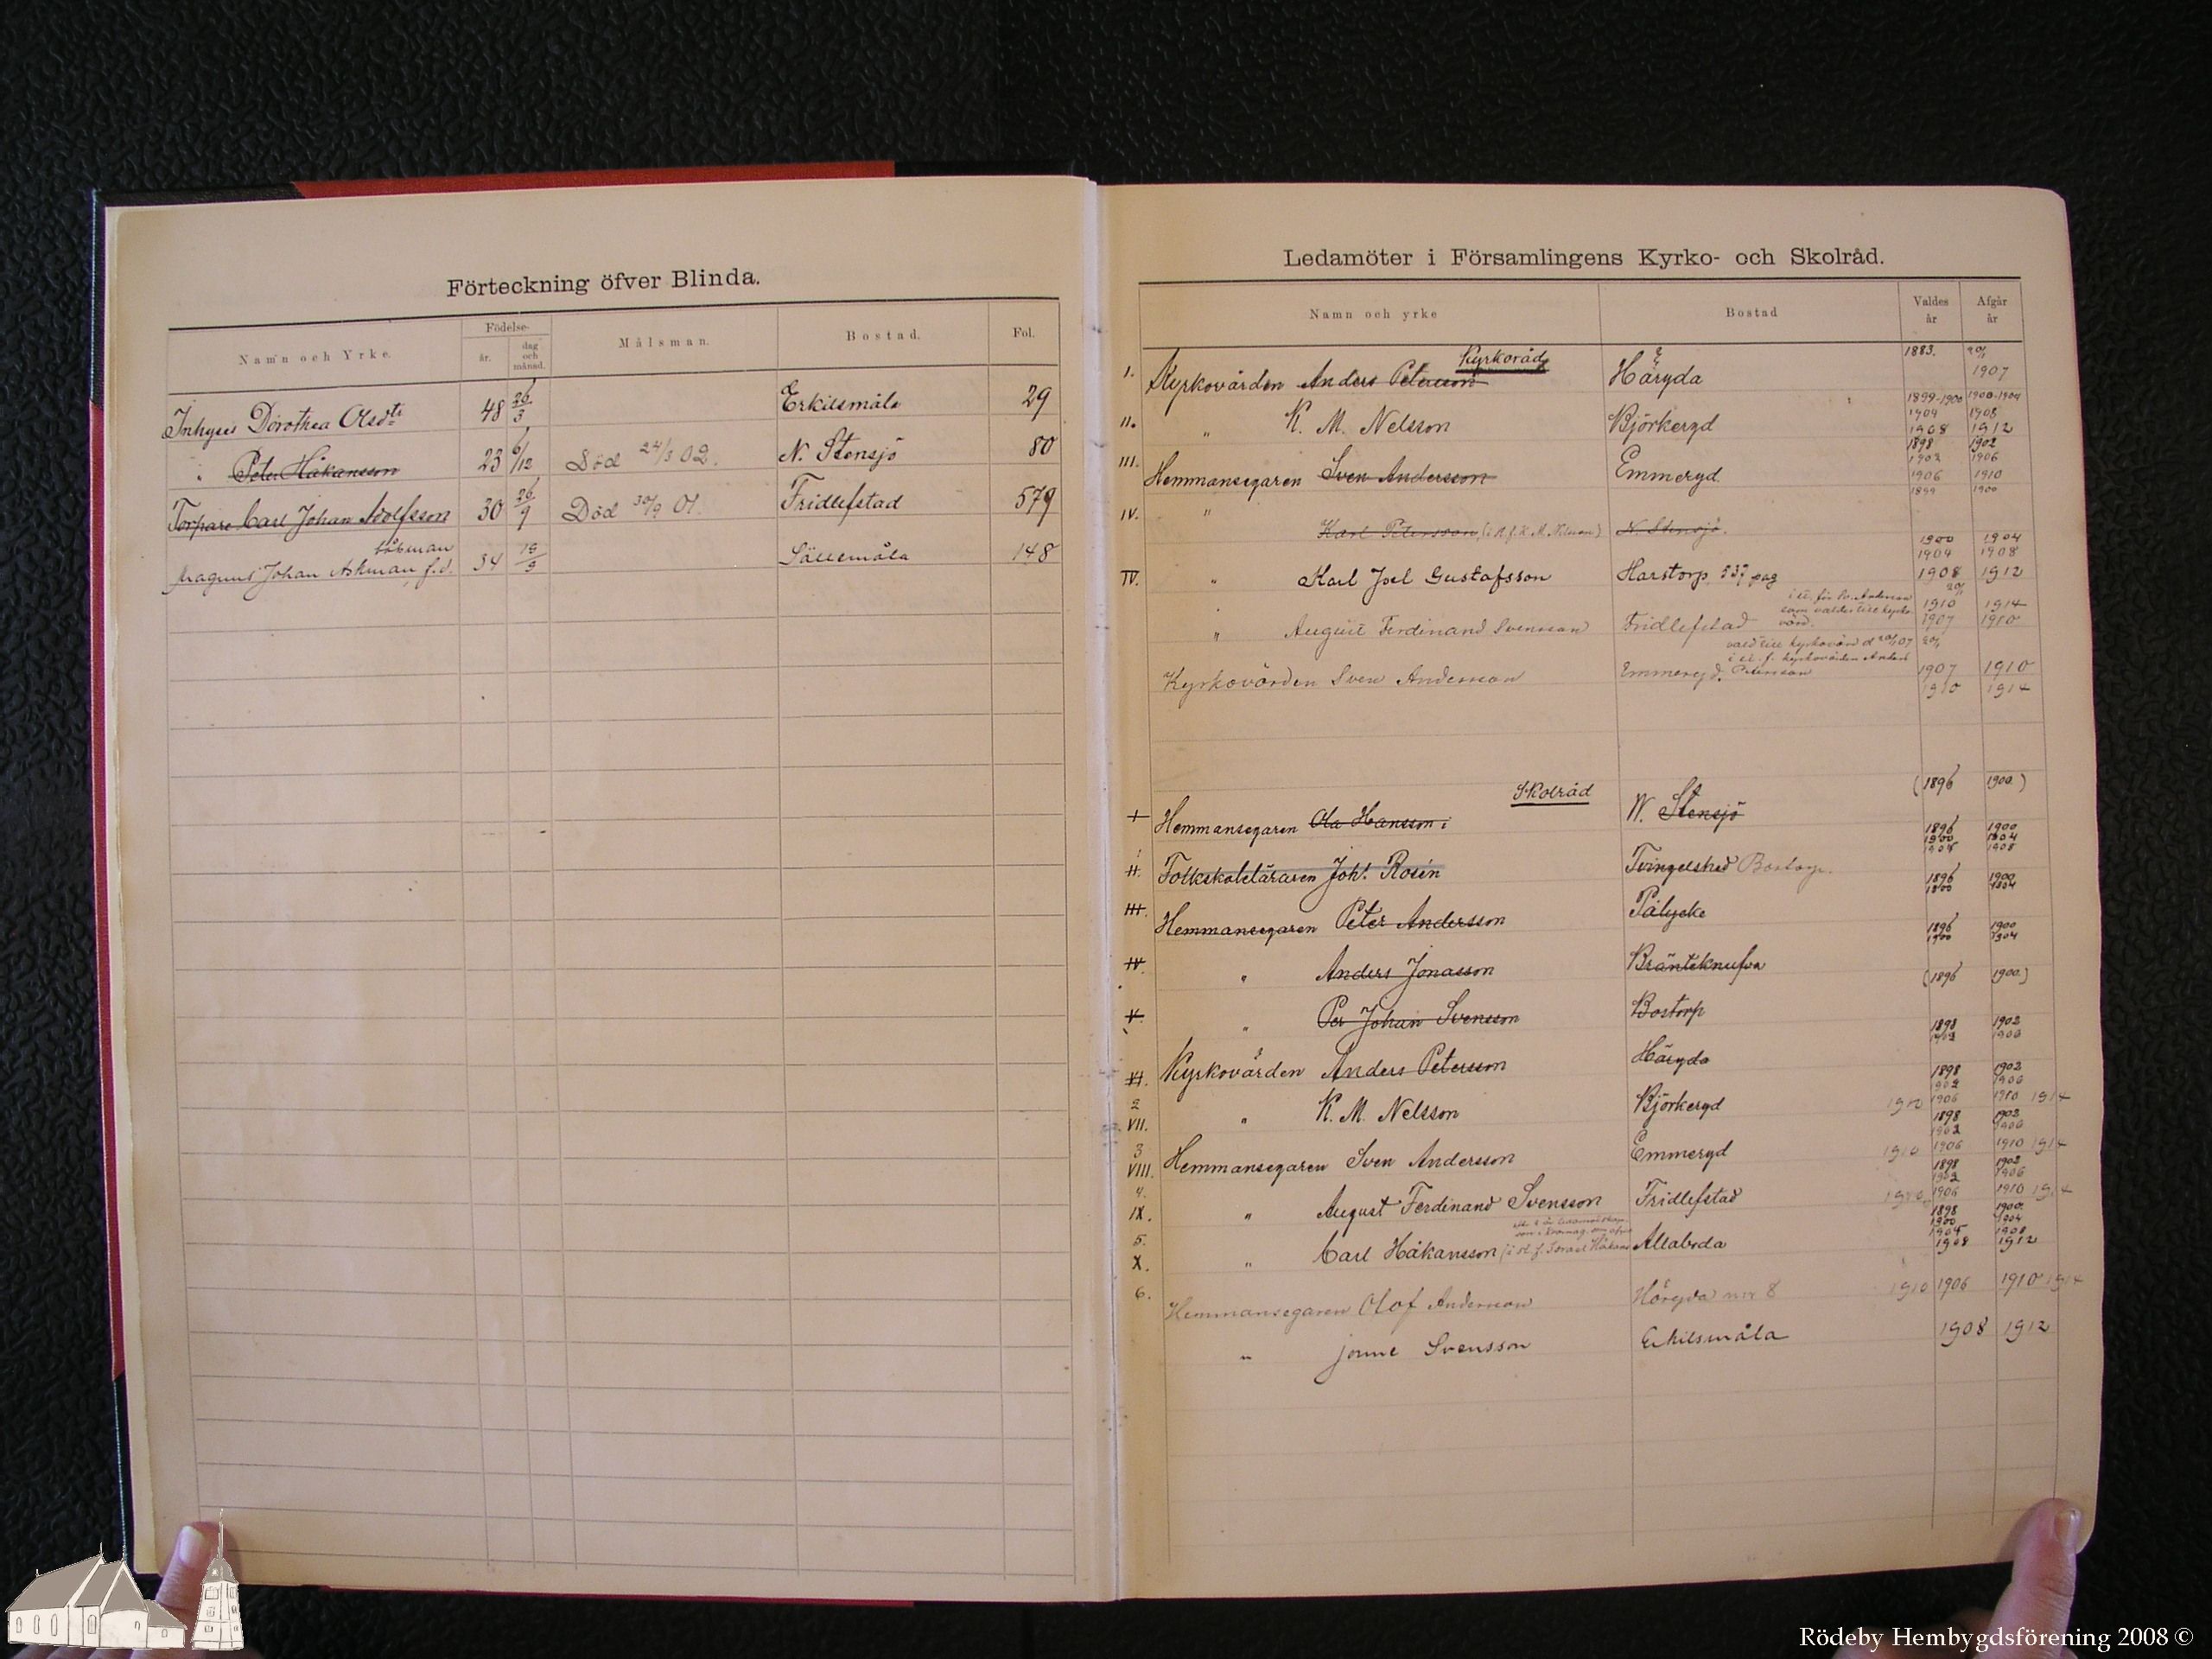 Förteckning öfver Blinda.
Namn och Yrke. Födelse- år. dag och månad. Målsman. Bostad. Fol.
Inhyses Dorothea Olsdtr 48 26/3 Erkilsmåla 29
" Peter Håkansson 23 6/12 Död 24/3 02. N. Stensjö 80
Torpare Carl Johan Adolfsson 30 26/9 Död 30/9 01. Fridlefstad 579
båtsman
Magnus Johan Askman f.d. 34 15/9 Sällemåla 148
Ledamöter i Församlingens Kyrko- och Skolråd.
Namn och yrke Bostad Valdes år Afgår år
Kyrkoråd
I. Kyrkovärden Anders Petersson Häryda 1883. 20/1 1907
1899-1900 1900-1904
II. " K. M. Nelsson Björkeryd 1904 1908
1908 1912
1898 1902
III. Hemmansegaren Sven Andersson Emmeryd. 1902 1906
1906 1910
1899 1900
IV. " Karl Petersson, (i st. f. K. M. Nilsson) N. Stensjö.
1900 1904
1904 1908
IV. " Karl Joel Gustafsson Harstorp. 537 pag 1908 1912
i st. för Sv. Andersson
som valdes till kyrko-
värd.
1910 1914
" August Ferdinand Svensson Fridlefstad 1907 1910
vald till kyrkovärd d 20/1 07 20/1
i st. f. kyrkovärden Anders
Petersson
Kyrkovärden Sven Andersson Emmeryd. 1907 1910
1910 1914
Skolråd
I Hemmansegaren Ola Hansson i W. Stensjö (1896 1900)
1896 1900
1900 1904
1904 1908
II. Folkskolläraren Joh. Rosén Tvingelshed Bostorp.
1896 1900
1900 1904
III. Hemmansegaren Peter Andersson Pålycke
1896 1900
1900 1904
IV. " Anders Jonasson Bränteknufva
(1896 1900)
V. " Per Johan Svensson Bostorp
1898 1902
1902 1906
VI. Kyrkovärden Anders Petersson Häryda
1898 1902
1902 1906
2 VII. " K. M. Nelsson Björkeryd 1910 1906 1910 1914
1898 1902
1902 1906
3 VIII. Hemmansegaren Sven Andersson Emmeryd 1910 1906 1910 1914
1898 1902
1902 1906
4. IX. " August Ferdinand Svensson Fridlefstad 1910 1906 1910 1914
1898 1900
1900 1904
1904 1908
5. X. " Carl Håkansson (i st. f. Israel Håkans Allaboda 1908 1912
6. Hemmansegaren Olof Andersson Häryda nr 8 1910 1906 1910 1914
" Jonne Svensson Erkilsmåla 1908 1912
Rödeby Hembygdsförening 2008 ©